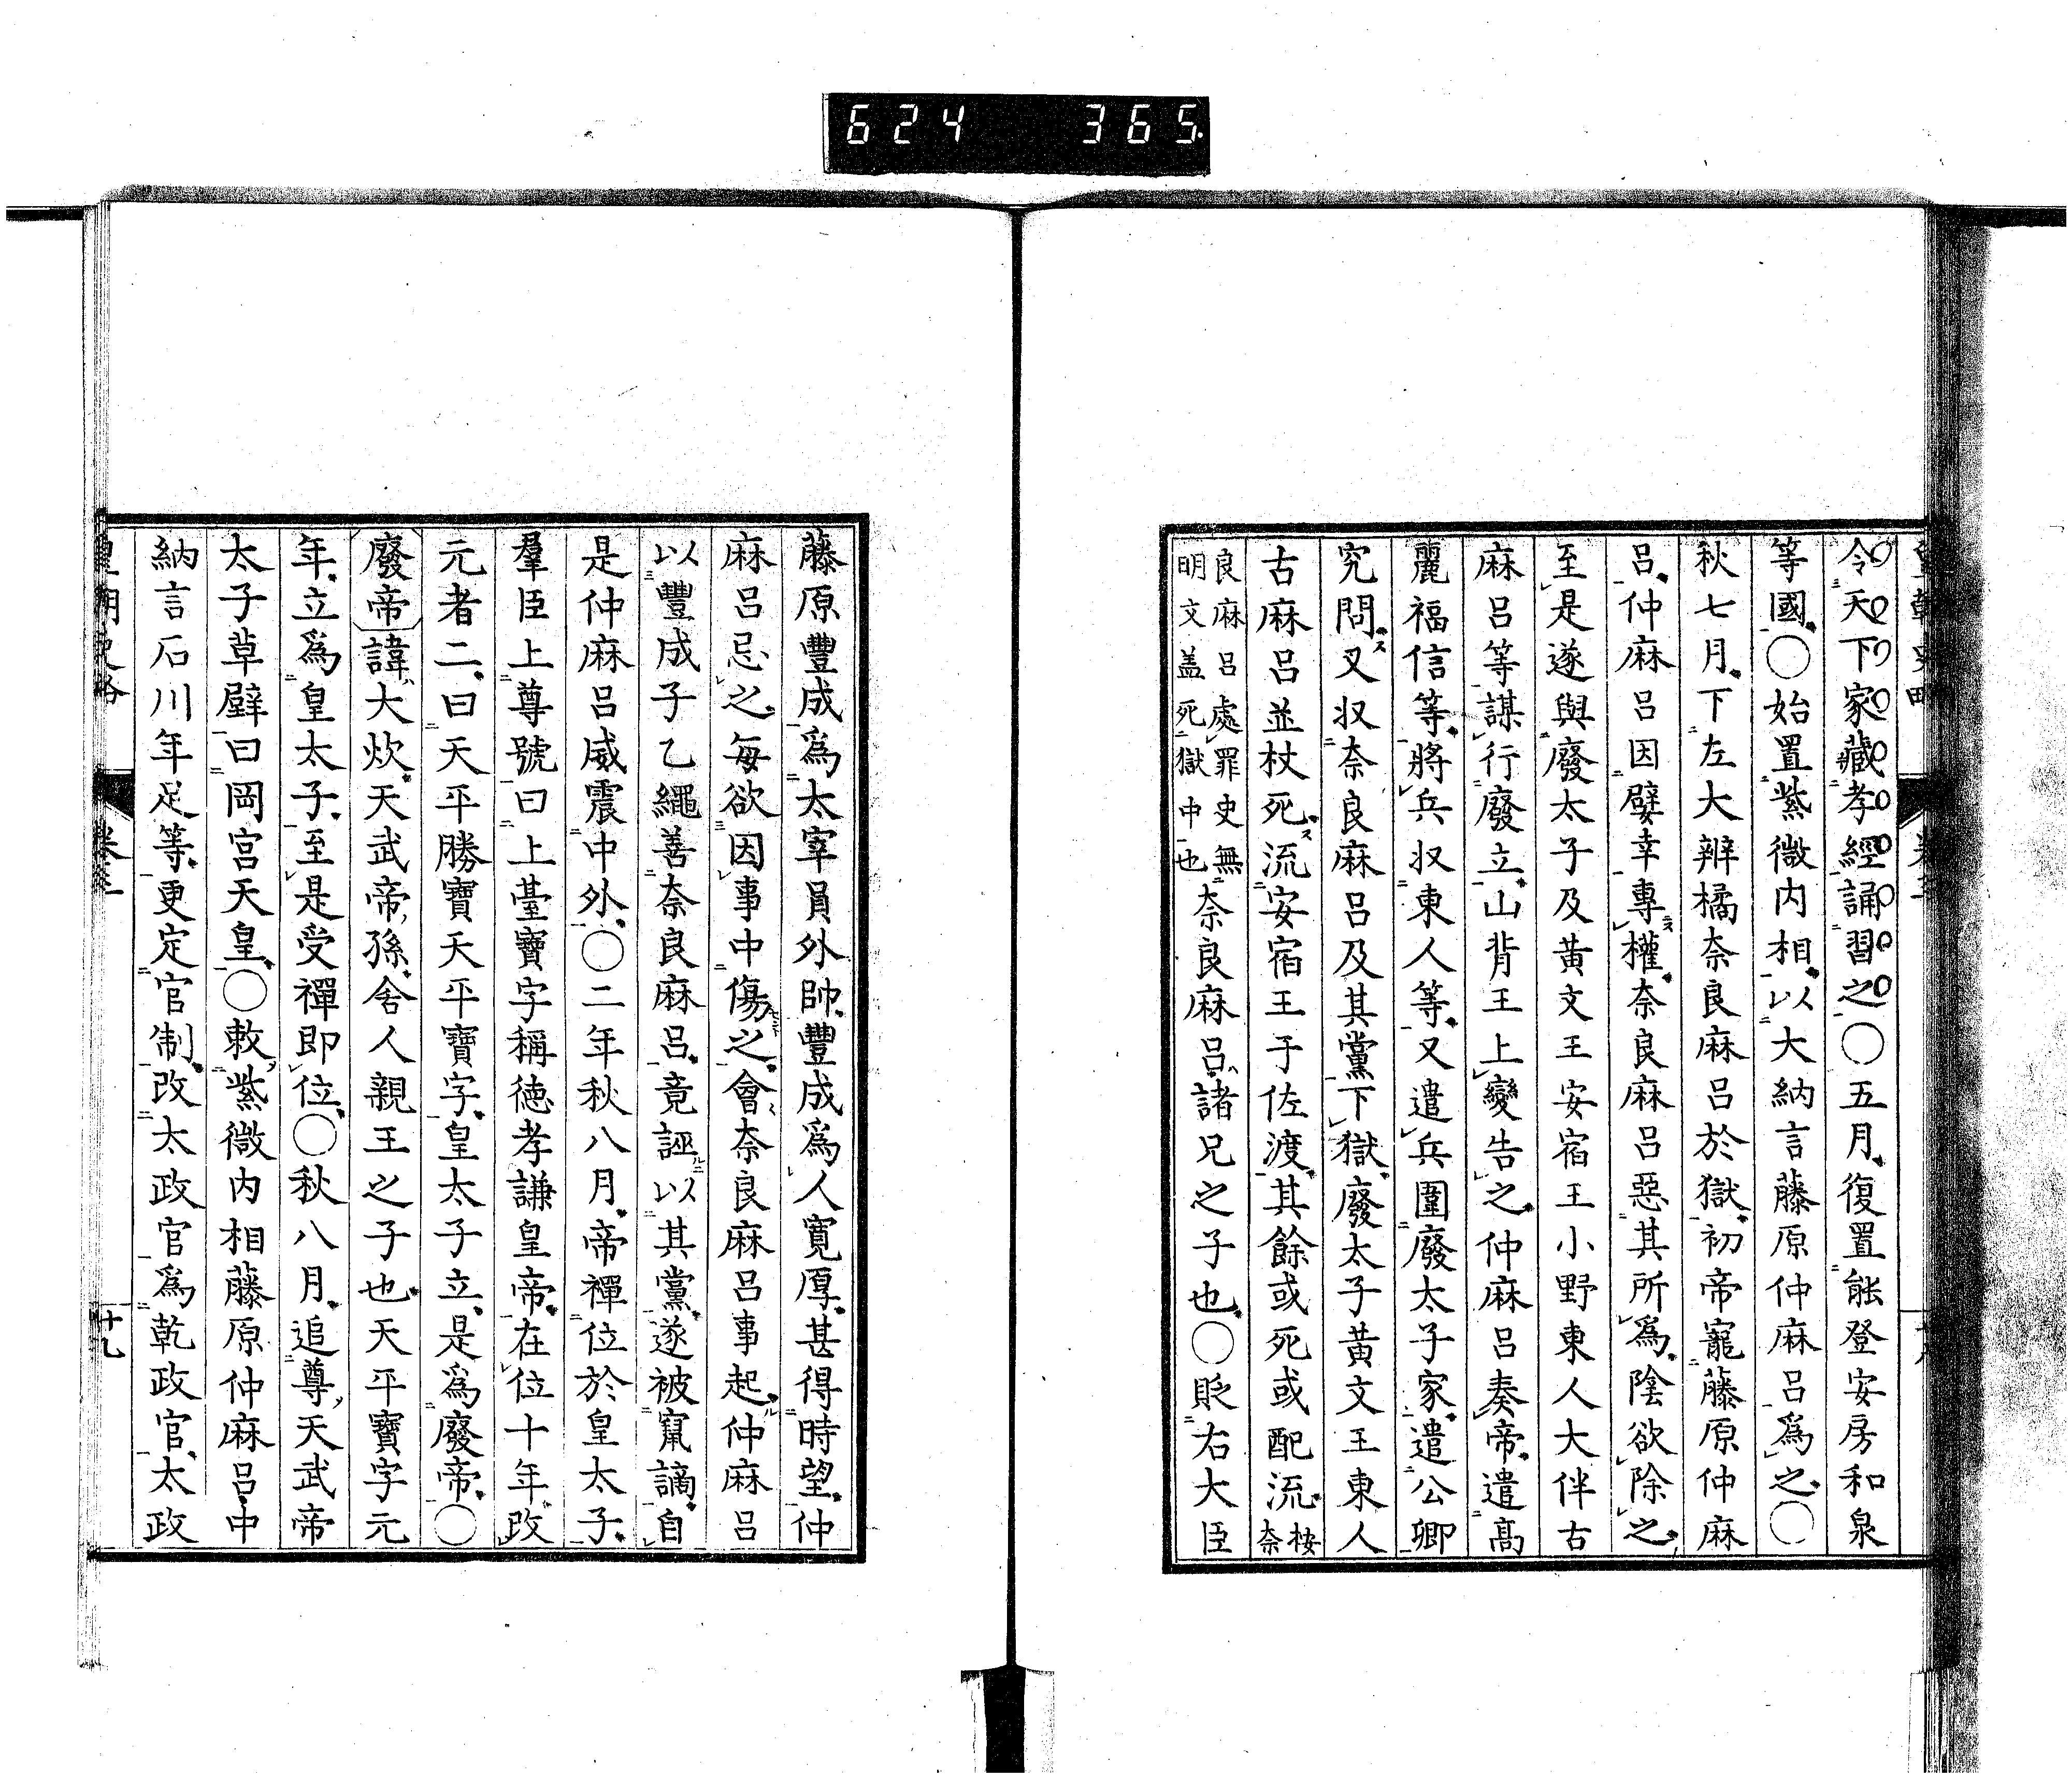 624 365
令天下家藏孝經誦習之〇五月復置能登安房和泉
等國〇始置紫微内相以大納言藤原仲麻呂爲之〇
秋七月下左大辨橘奈良麻呂於獄初帝寵藤原仲麻
呂仲麻呂因嬖幸專權奈良麻呂惡其所爲陰欲除之
至是遂與廢太子及黃文王安宿王小野東人大伴古
麻呂等謀行廢立山背王上變告之仲麻呂奏帝遣髙
麗福信等將兵収東人等又遣兵圍廢太子家遣公卿
究問又収奈良麻呂及其黨下獄廢太子黃文王東人
古麻呂並杖死流安宿王子佐渡其餘或死或配流桉奈
良麻呂處罪史無明文盖死獄中也奈良麻呂諸兄之子也〇貶右大臣
藤原豐成爲太宰員外帥豐成爲人寬厚甚得時望仲
麻呂忌之每欲因事中傷之會奈良麻呂事起仲麻呂
以豐成子乙繩善奈良麻呂竟誣以其黨遂被竄謫自
是仲麻呂威震中外〇二年秋八月帝禪位於皇太子
羣臣上尊號曰上臺寶字稱德孝謙皇帝在位十年改
元者二曰天平勝寶天平寶字皇太子立是爲廢帝〇
廢帝諱大炊天武帝孫舍人親王之子也天平寶字元
年立爲皇太子至是受禪即位〇秋八月追尊天武帝
太子草壁曰岡宮天皇〇敕紫微内相藤原仲麻呂中
納言石川年足等更定官制改太政官爲乾政官太政
十九